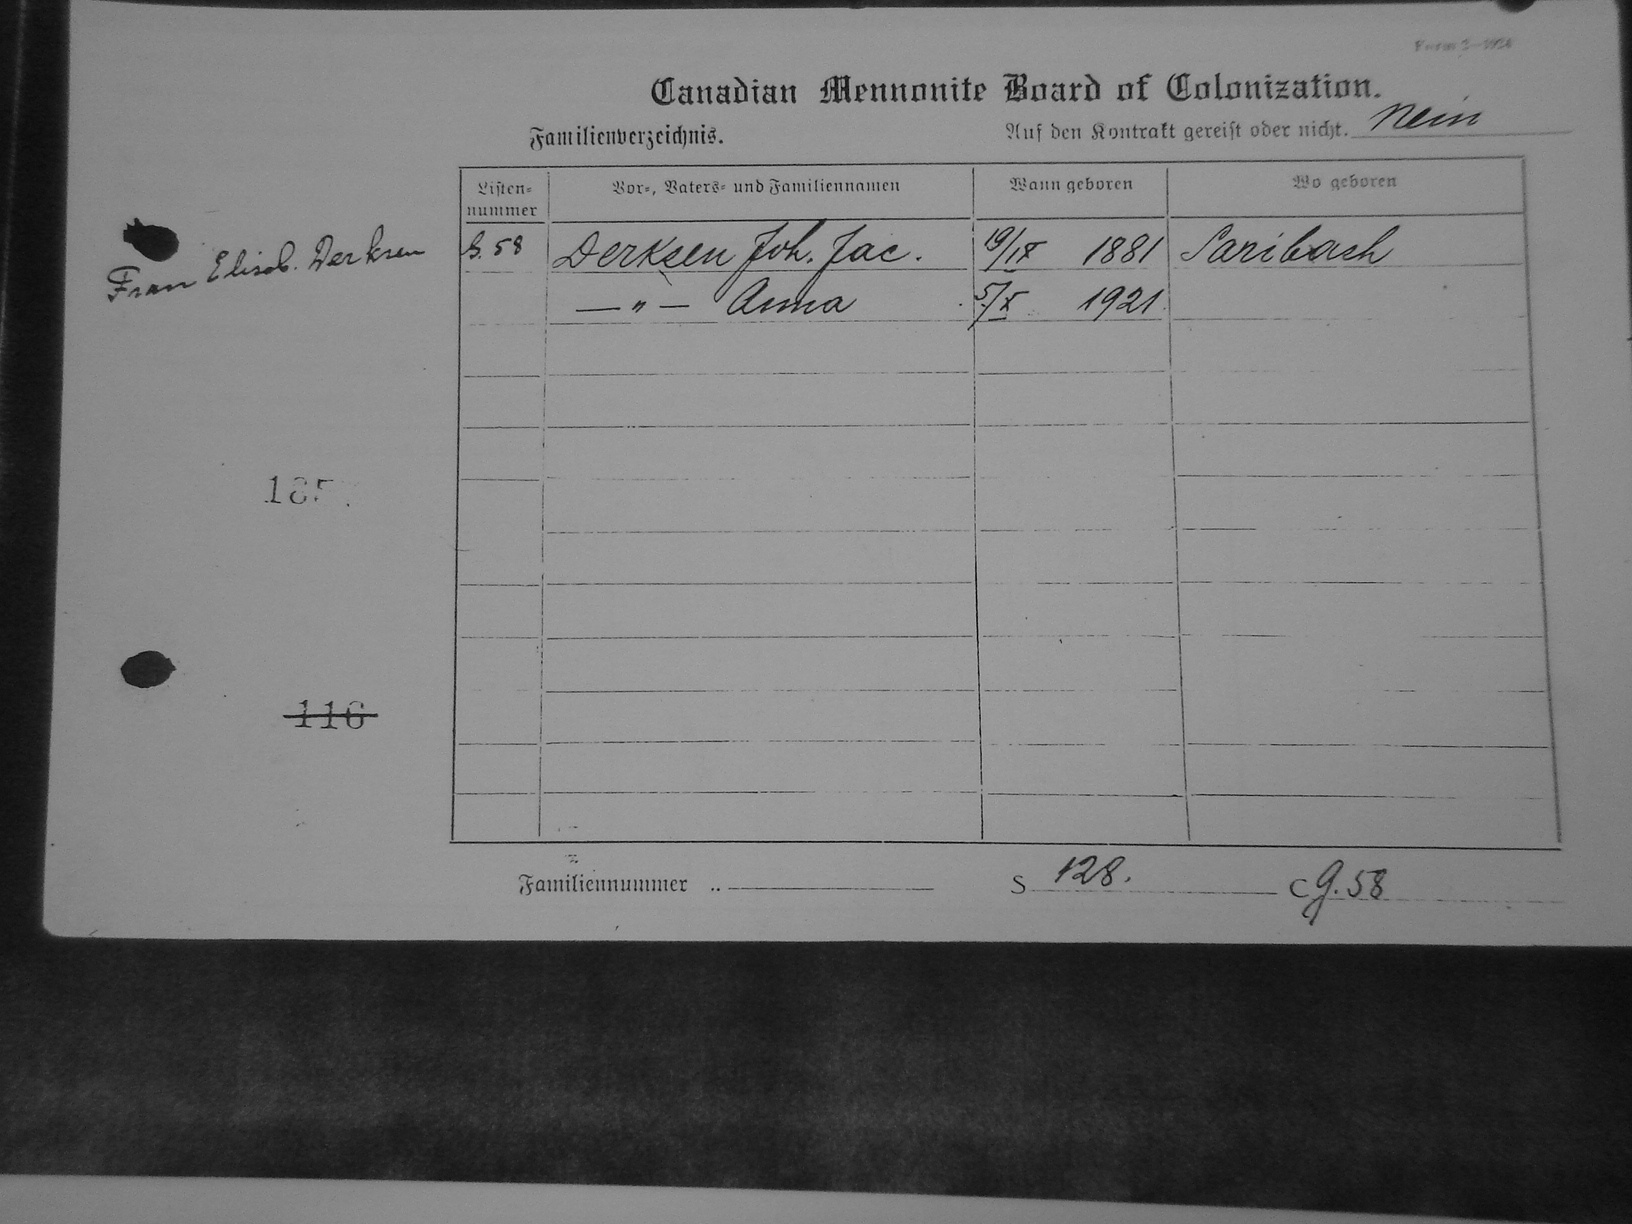 Form 2—1924
Canadian Mennonite Board of Colonization.
Familienverzeichnis.
Auf den Kontrakt gereist oder nicht. Nein
Listen-nummer Vor-, Vaters- und Familiennamen Wann geboren Wo geboren
Frau Elisab. Derksen
G. 58 Derksen Joh. Jac. 19/IX 1881 Saribasch
— " — Anna 5/X 1921
116
Familiennummer .. S 128. C G. 58